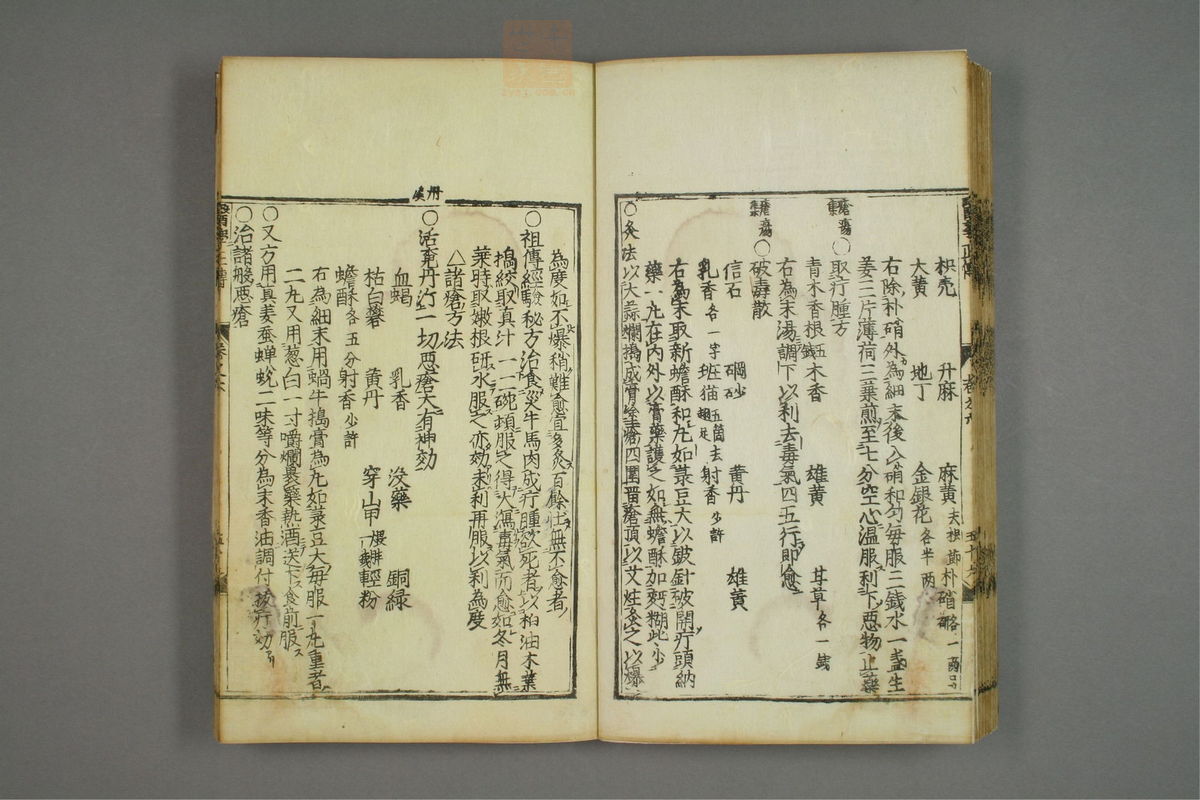 枳壳 升麻 麻黄去根節朴硝各一兩
大黄 地丁 金銀花各半兩
右除朴硝外為細末後入硝和勻每服三錢水一盞生
姜三片薄荷三葉煎至七分空心温服利下惡物止藥
瘡瘍集
○取疔腫方
青木香根五錢木香 雄黄 甘草各一錢
右為末湯調下以利去毒氣四五行即愈
瘡瘍集
○破毒散
信石 硇砂 黄丹 雄黄
乳香各一字班猫五箇去翅足射香少許
右為末取新蟾酥和丸如菉豆大以鈹針破開疔頭納
藥一丸在内外以膏藥護之如無蟾酥加麪糊此少
○灸法以大蒜爛搗成膏塗瘡四圍畱瘡頂以艾炷灸之以爆
為度如不爆稍難愈宜多灸百餘壮無不愈者
○祖傳經驗秘方治食災牛馬肉成疔腫欲死者以柏油木葉
搗絞取真汁一二碗頓服之得大瀉毒氣而愈如冬月無
葉時取嫩根砥水服之亦効未利再服以利為度
△諸瘡方法
丹溪
○活兗丹治一切惡瘡大有神効
血蝎 乳香 没藥 銅緑
枯白礬 黄丹 穿山甲輕粉
蟾酥各五分射香少許
右為細末用蝸牛搗膏為丸如菉豆大每服一丸重者
二丸又用葱白一寸嚼爛裹藥熱酒送下食前服
○又方用真姜蚕蝉蛻二味等分為末香油調付拔疔効
○治諸般惡瘡